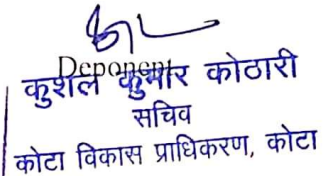 Deponent
कुशल कुमार कोठारी
सचिव
कोटा विकास प्राधिकरण, कोटा